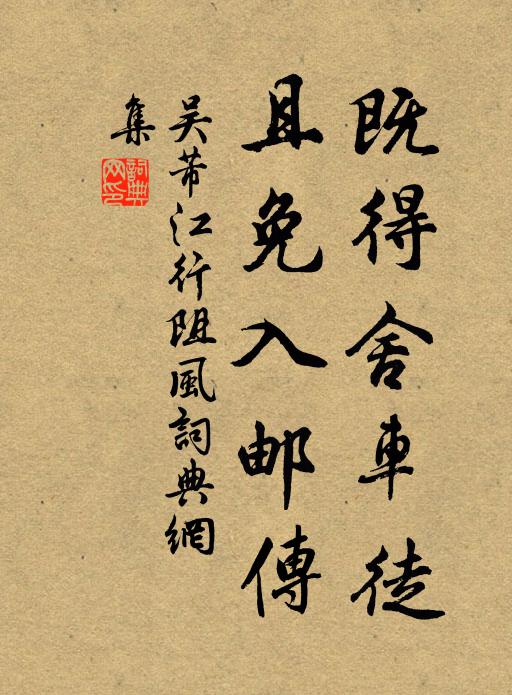 既得舍車徒
且免入邮傳
吴芾江行阻風詞典網
集
詞典
网印